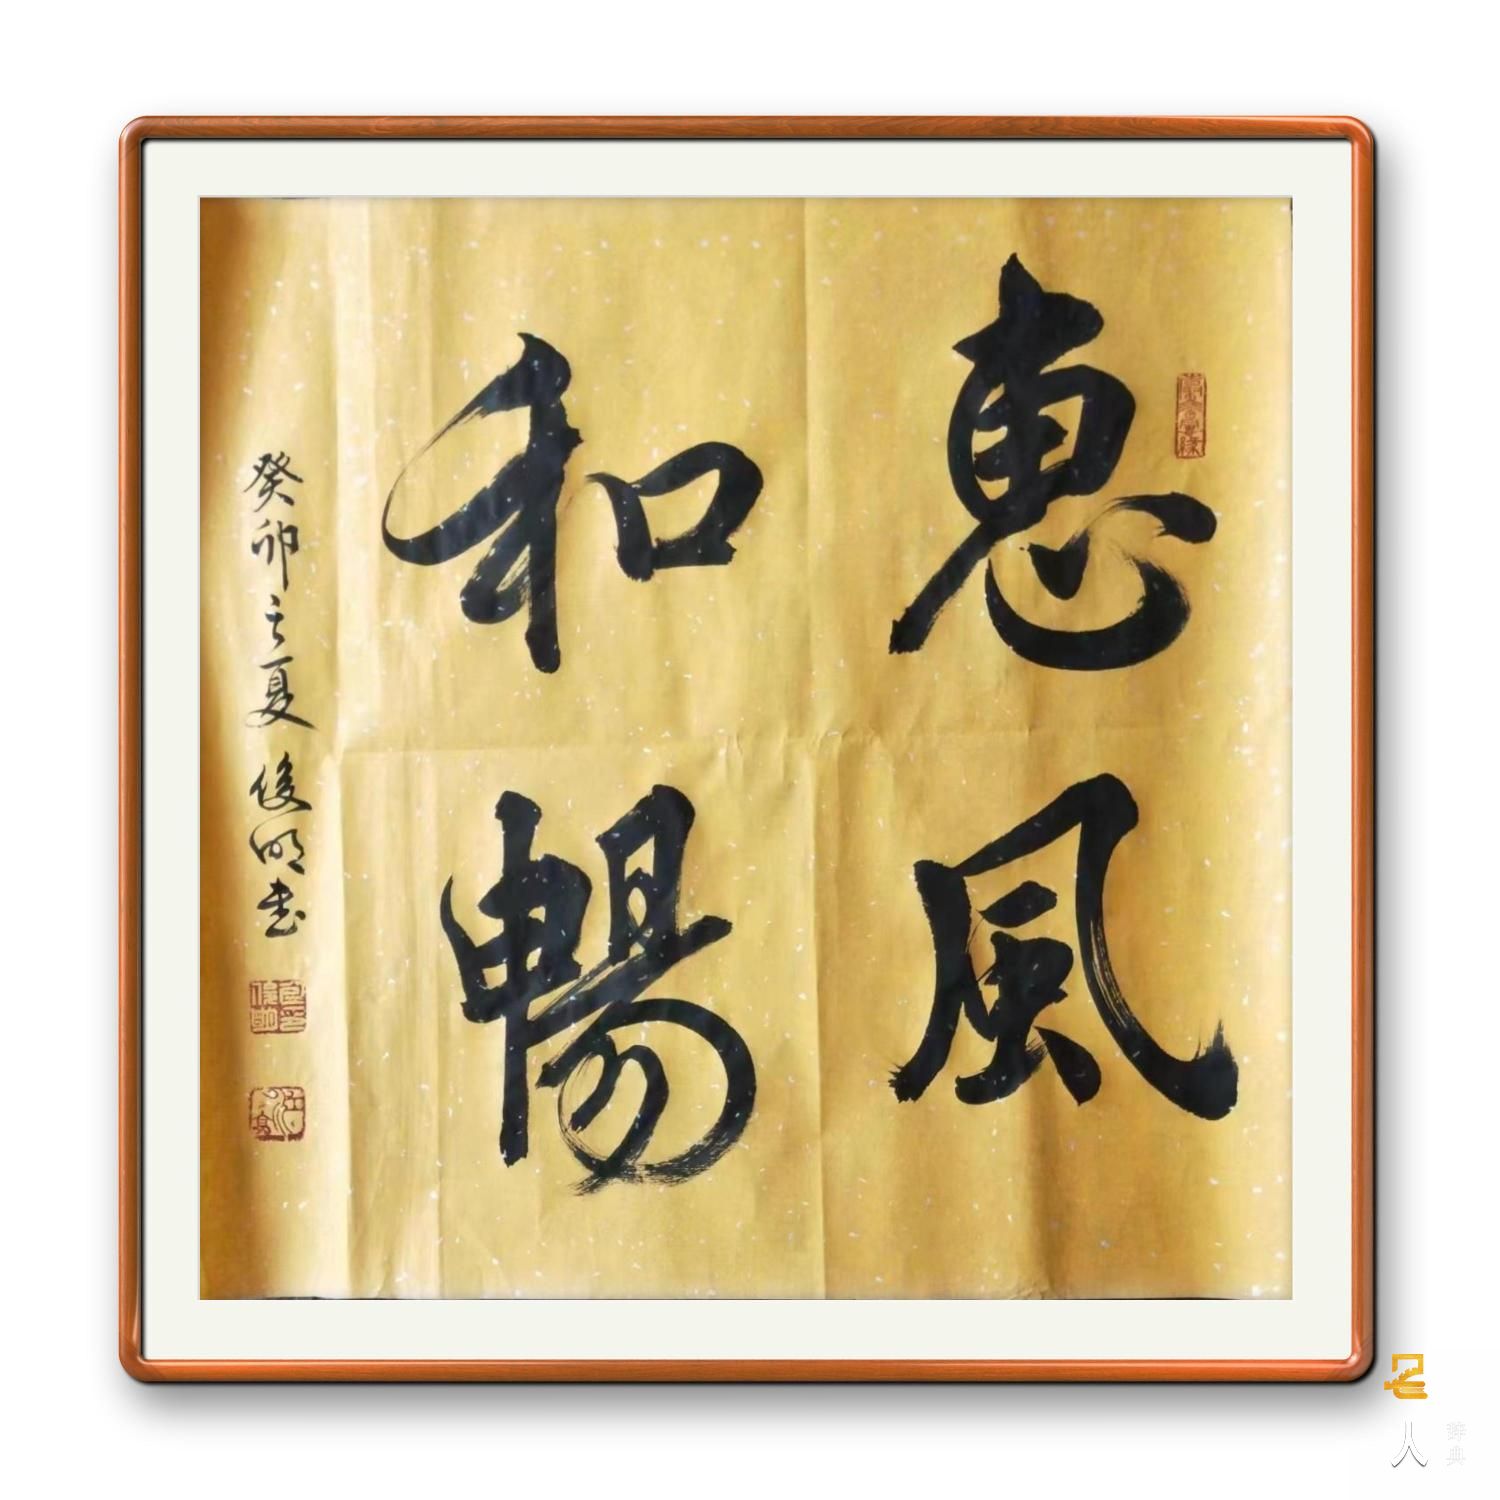 惠風
和暢
癸卯之夏 俊明書
人
辞典